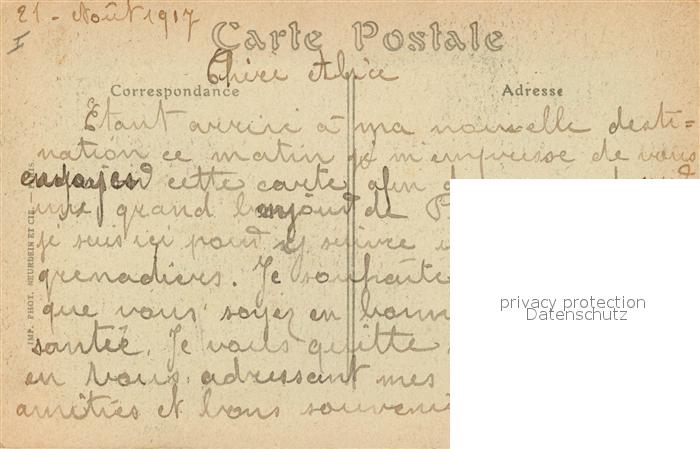 21 - Août 1917
I
Carte Postale
Chère Alice
Correspondance
Adresse
Etant arrivé à ma nouvelle desti=
nation ce matin je m'empresse de vous
cette carte afin
une grand bonjour de
je suis ici pour y suivre
grenadiers. Je souhaite
que vous soyez en bonne
santée. Je vous quitte
en vous adressant mes
amitiés et bons souveni
IMP. PHOT. NEURDEIN ET CIE. - PARIS
privacy protection
Datenschutz